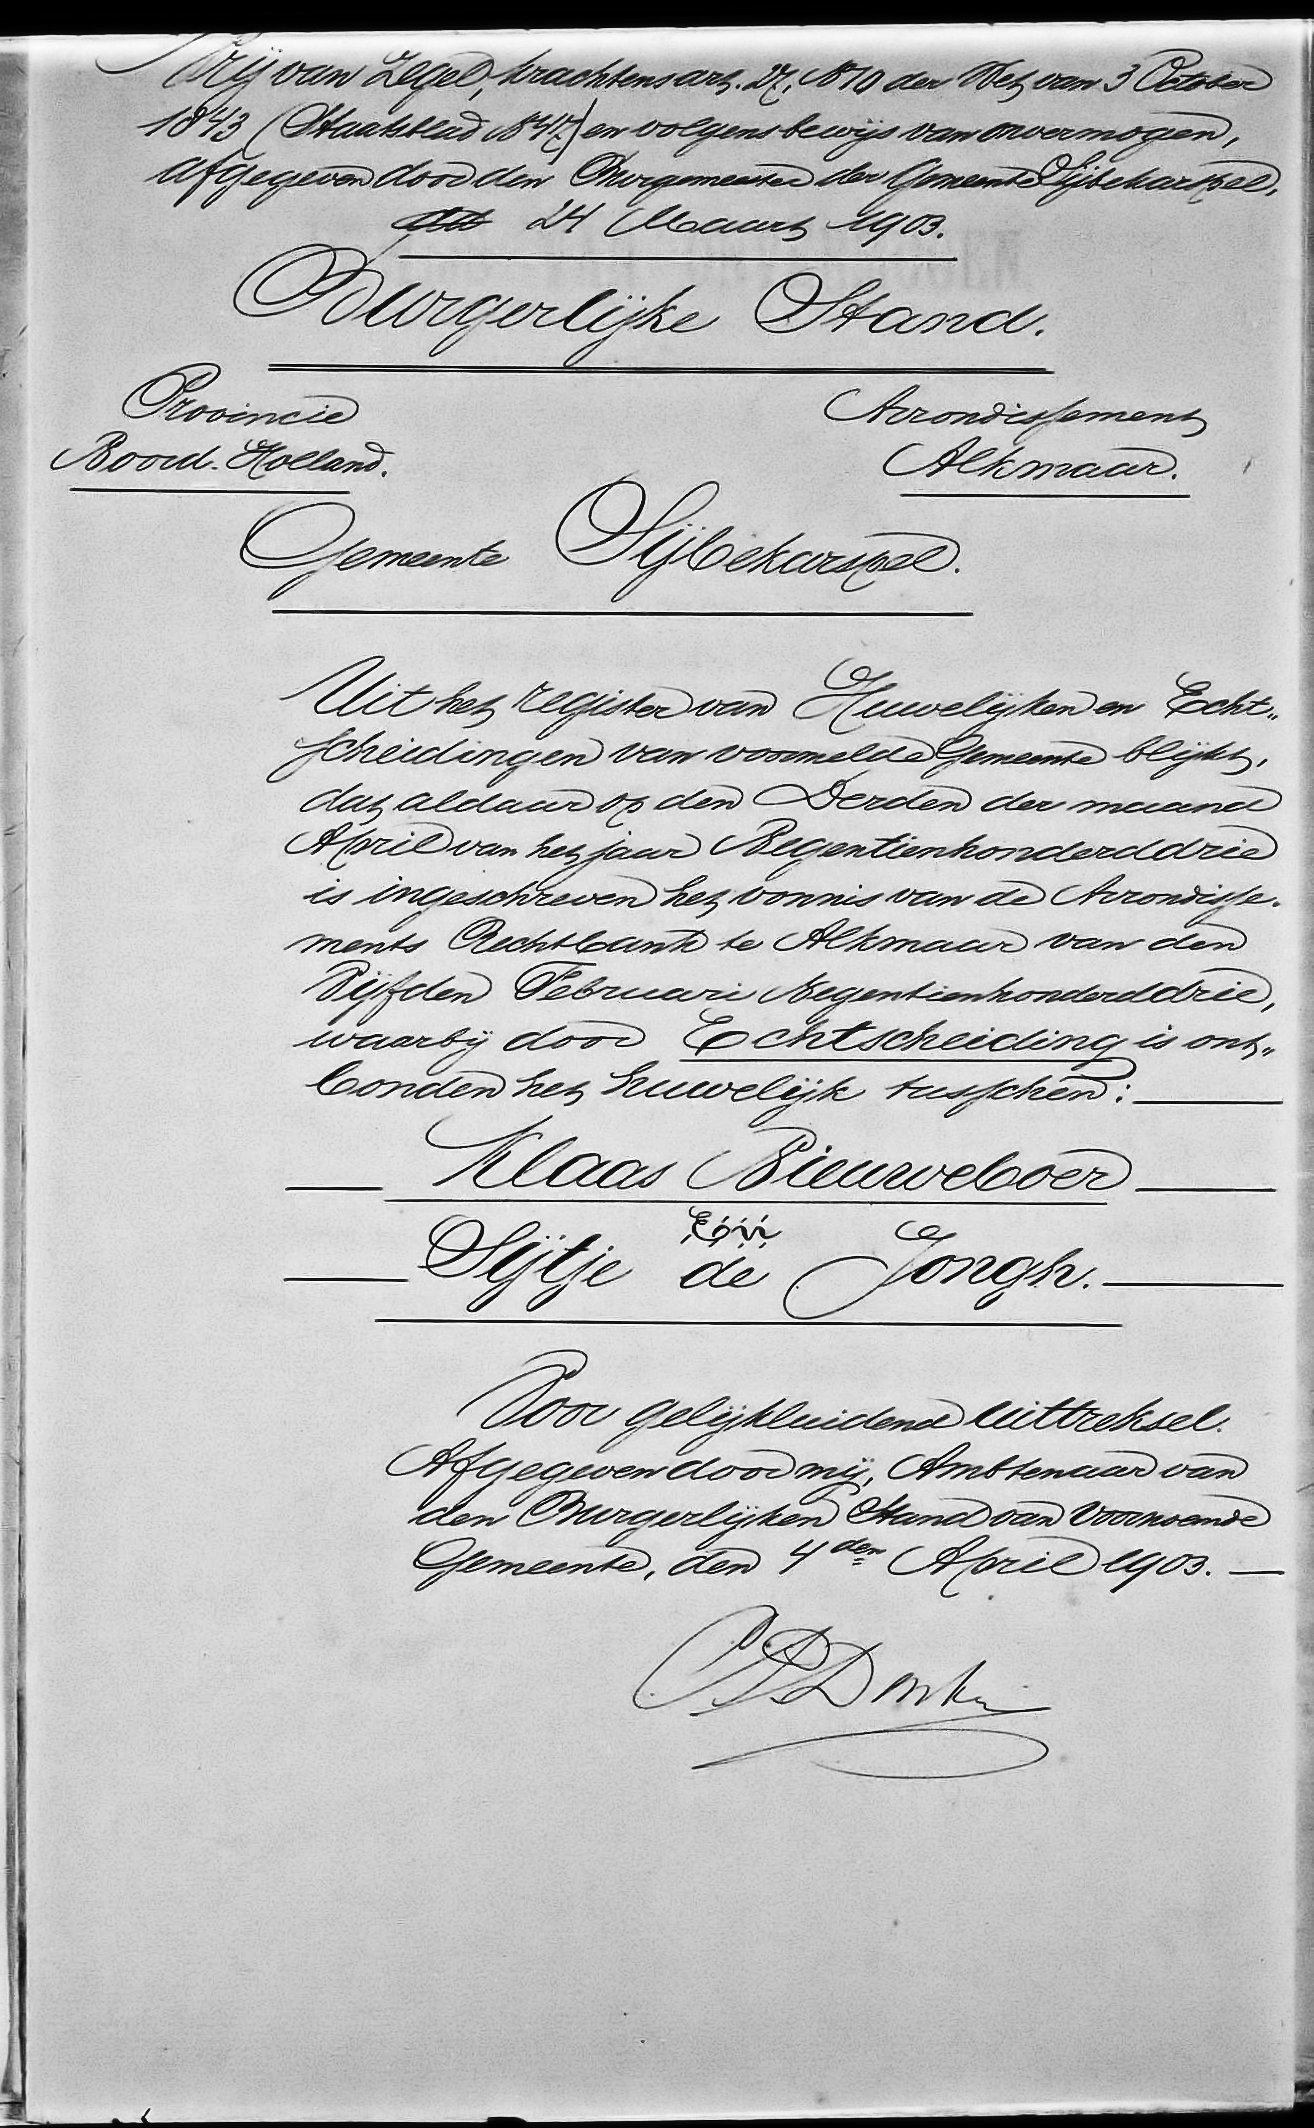 Vrij van Zegel, krachtens art. 27, No 70 der Wet van 3 October
1843 (Staatsblad No 47) en volgens bewijs van onvermogen,
afgegeven door den Burgemeester der Gemeente Sijbekarspel,
dd 24 Maart 1903.
Burgerlijke Stand.
Provincie
Noord-Holland.
Arrondissement
Alkmaar.
Gemeente Sijbekarspel.
Uit het register van Huwelijken en Echt„
scheidingen van voormelde Gemeente blijkt,
dat aldaar op den Derden der maand
April van het jaar Negentienhonderddrie
is ingeschreven het vonnis van de Arrondisse-
ments Rechtbank te Alkmaar van den
Vijfden Februari Negentienhonderddrie,
waarbij door Echtscheiding is ont„
bonden het huwelijk tusschen:
Klaas Nieuweboer
En
Sijtje de Jongh.
Voor gelijkluidend uittreksel.
Afgegeven door mij, Ambtenaar van
den Burgerlijken Stand van voornoemde
Gemeente, den 4den April 1903.